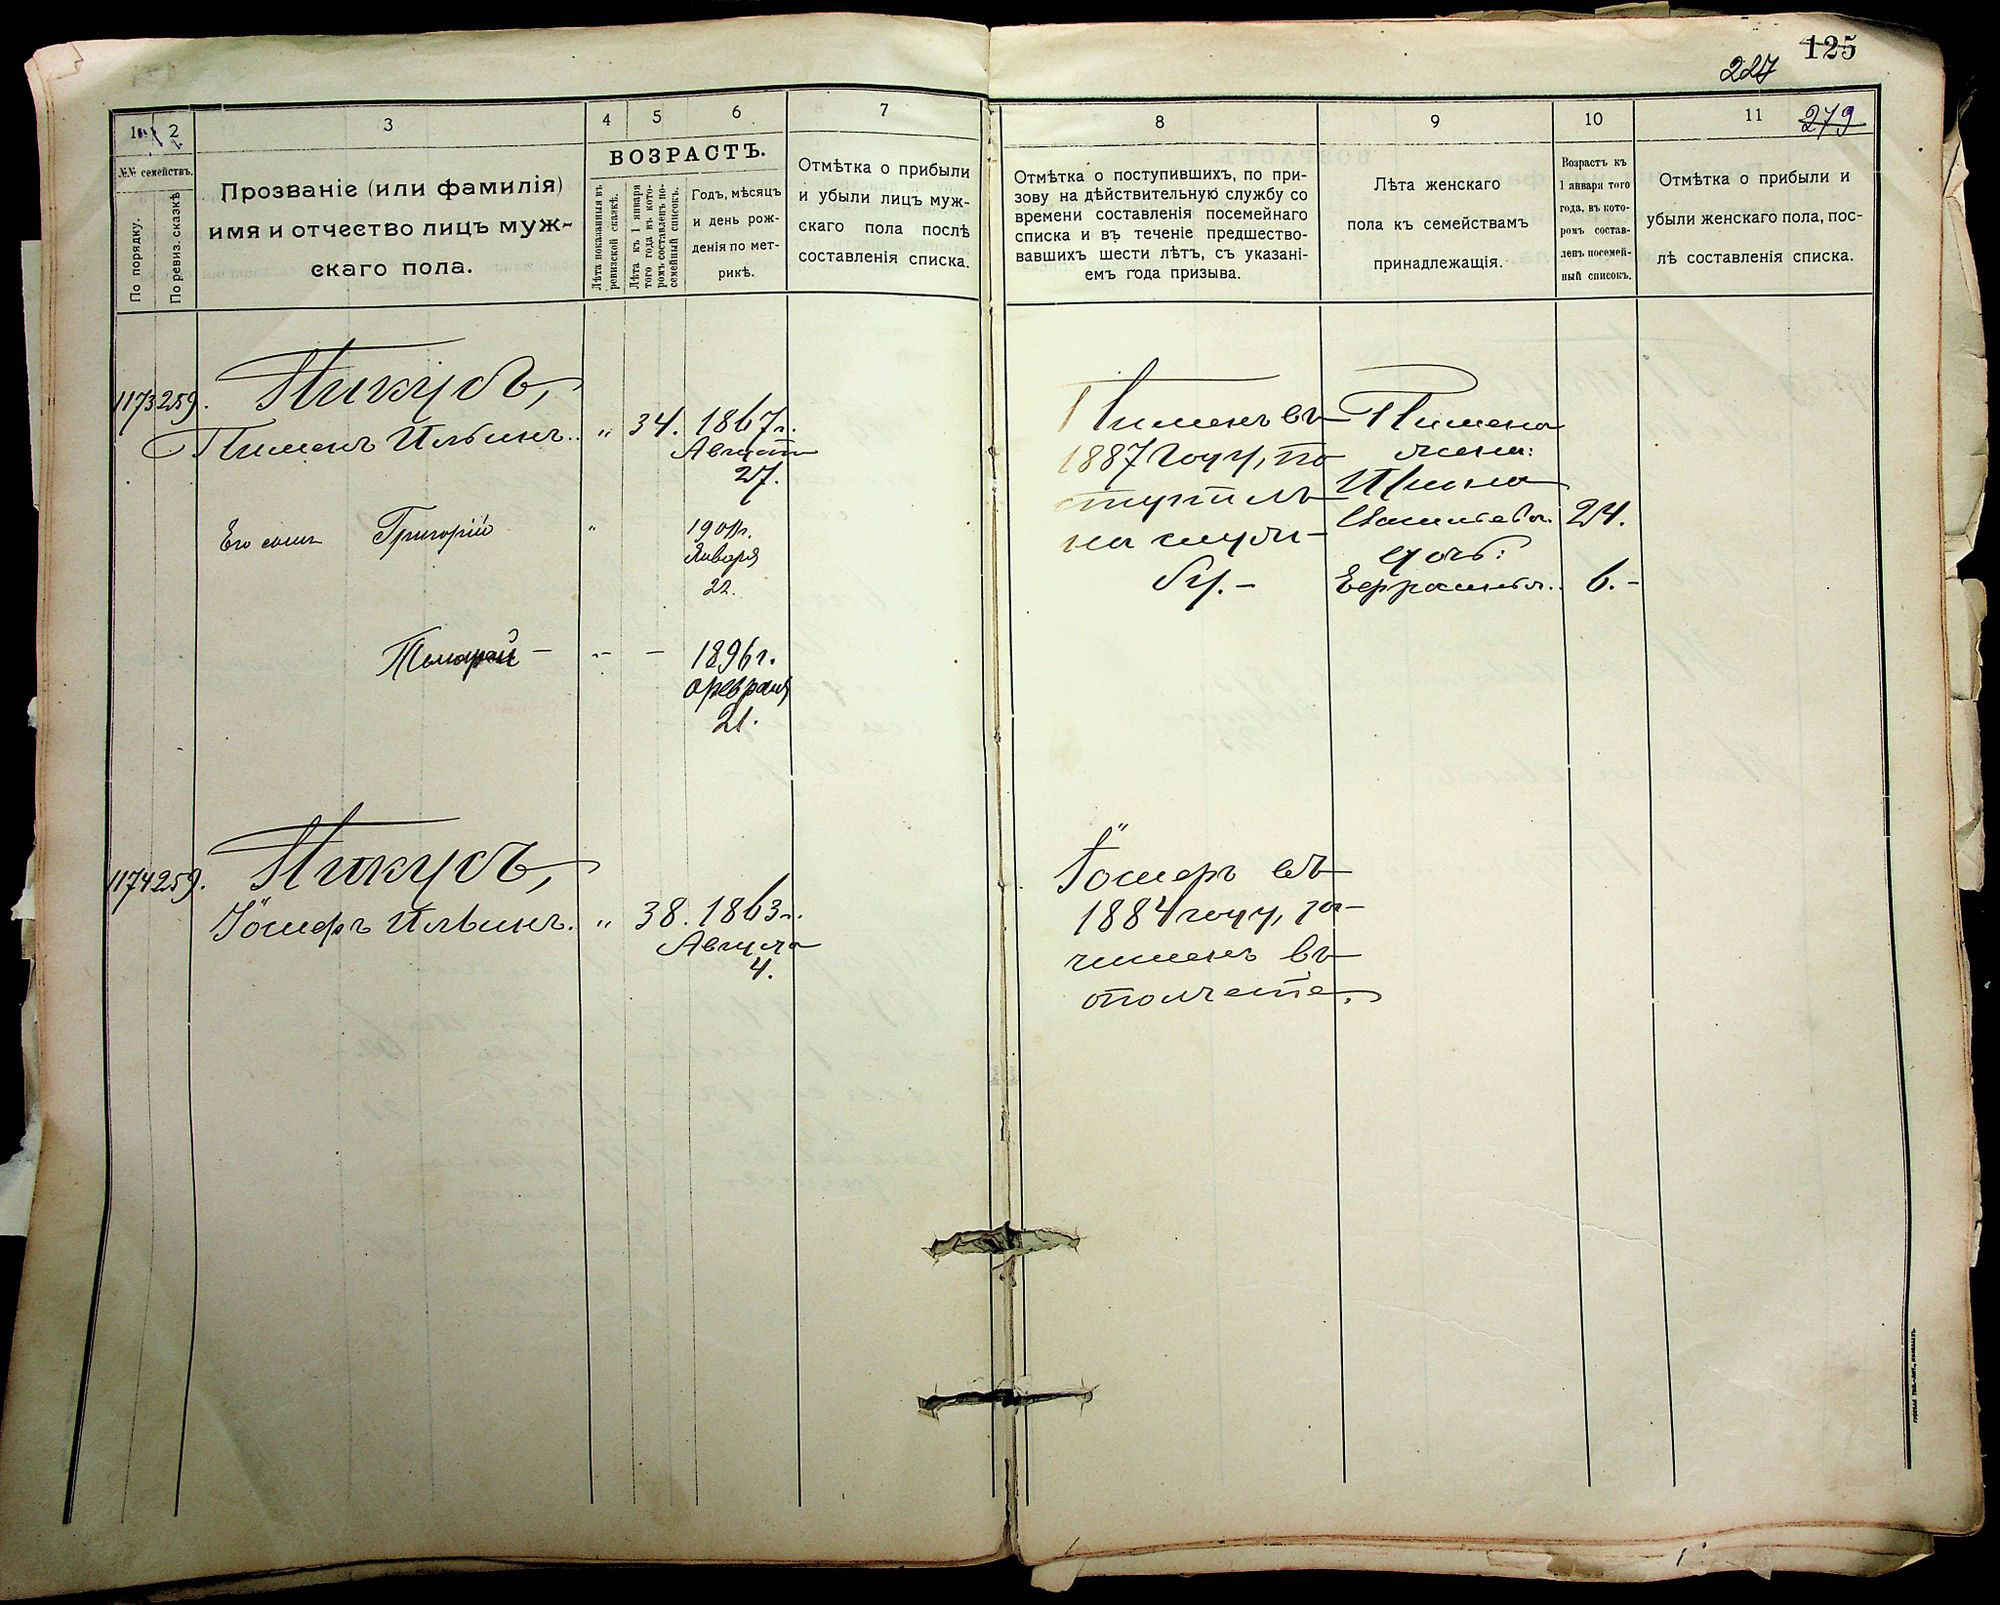 125
227
279
1
2
3
4
5
6
7
№№ семействъ.
По порядку.
По ревиз. сказкѣ
Прозваніе (или фамилія)
имя и отчество лицъ муж-
скаго пола.
ВОЗРАСТЪ.
Лѣта показанныя въ
ревизской сказкѣ.
Лѣта къ 1 января
того года въ кото-
ромъ составленъ по-
семейный списокъ.
Годъ, мѣсяцъ
и день рож-
денія по мет-
рикѣ.
Отмѣтка о прибыли
и убыли лицъ муж-
скаго пола послѣ
составленія списка.
8
9
10
11
Отмѣтка о поступившихъ, по при-
зову на дѣйствительную службу со
времени составленія посемейнаго
списка и въ теченіе предшество-
вавшихъ шести лѣтъ, съ указані-
емъ года призыва.
Лѣта женскаго
пола къ семействамъ
принадлежащія.
Возрастъ къ
1 января того
года, въ кото-
ромъ состав-
ленъ посемей-
ный списокъ.
Отмѣтка о прибыли и
убыли женскаго пола, пос-
лѣ составленія списка.
1173 259.
Пикусъ,
Пименъ Ильинъ. „ 34. 1867 г.
Августа
27.
Его сынъ Григорій „ 1901 г.
Января
22.
— „ — 1896 г.
февраля
21.
Пименъ въ
1887 году, по
ступилъ
на служ-
бу. —
Пимена
жена:
Ирина
24.
дочь:
6. -
1174 259.
Пикусъ,
Іосифъ Ильинъ. „ 38. 1863 г.
Августа
4.
Іосифъ въ
1884 году, за-
численъ въ
ополченіе.